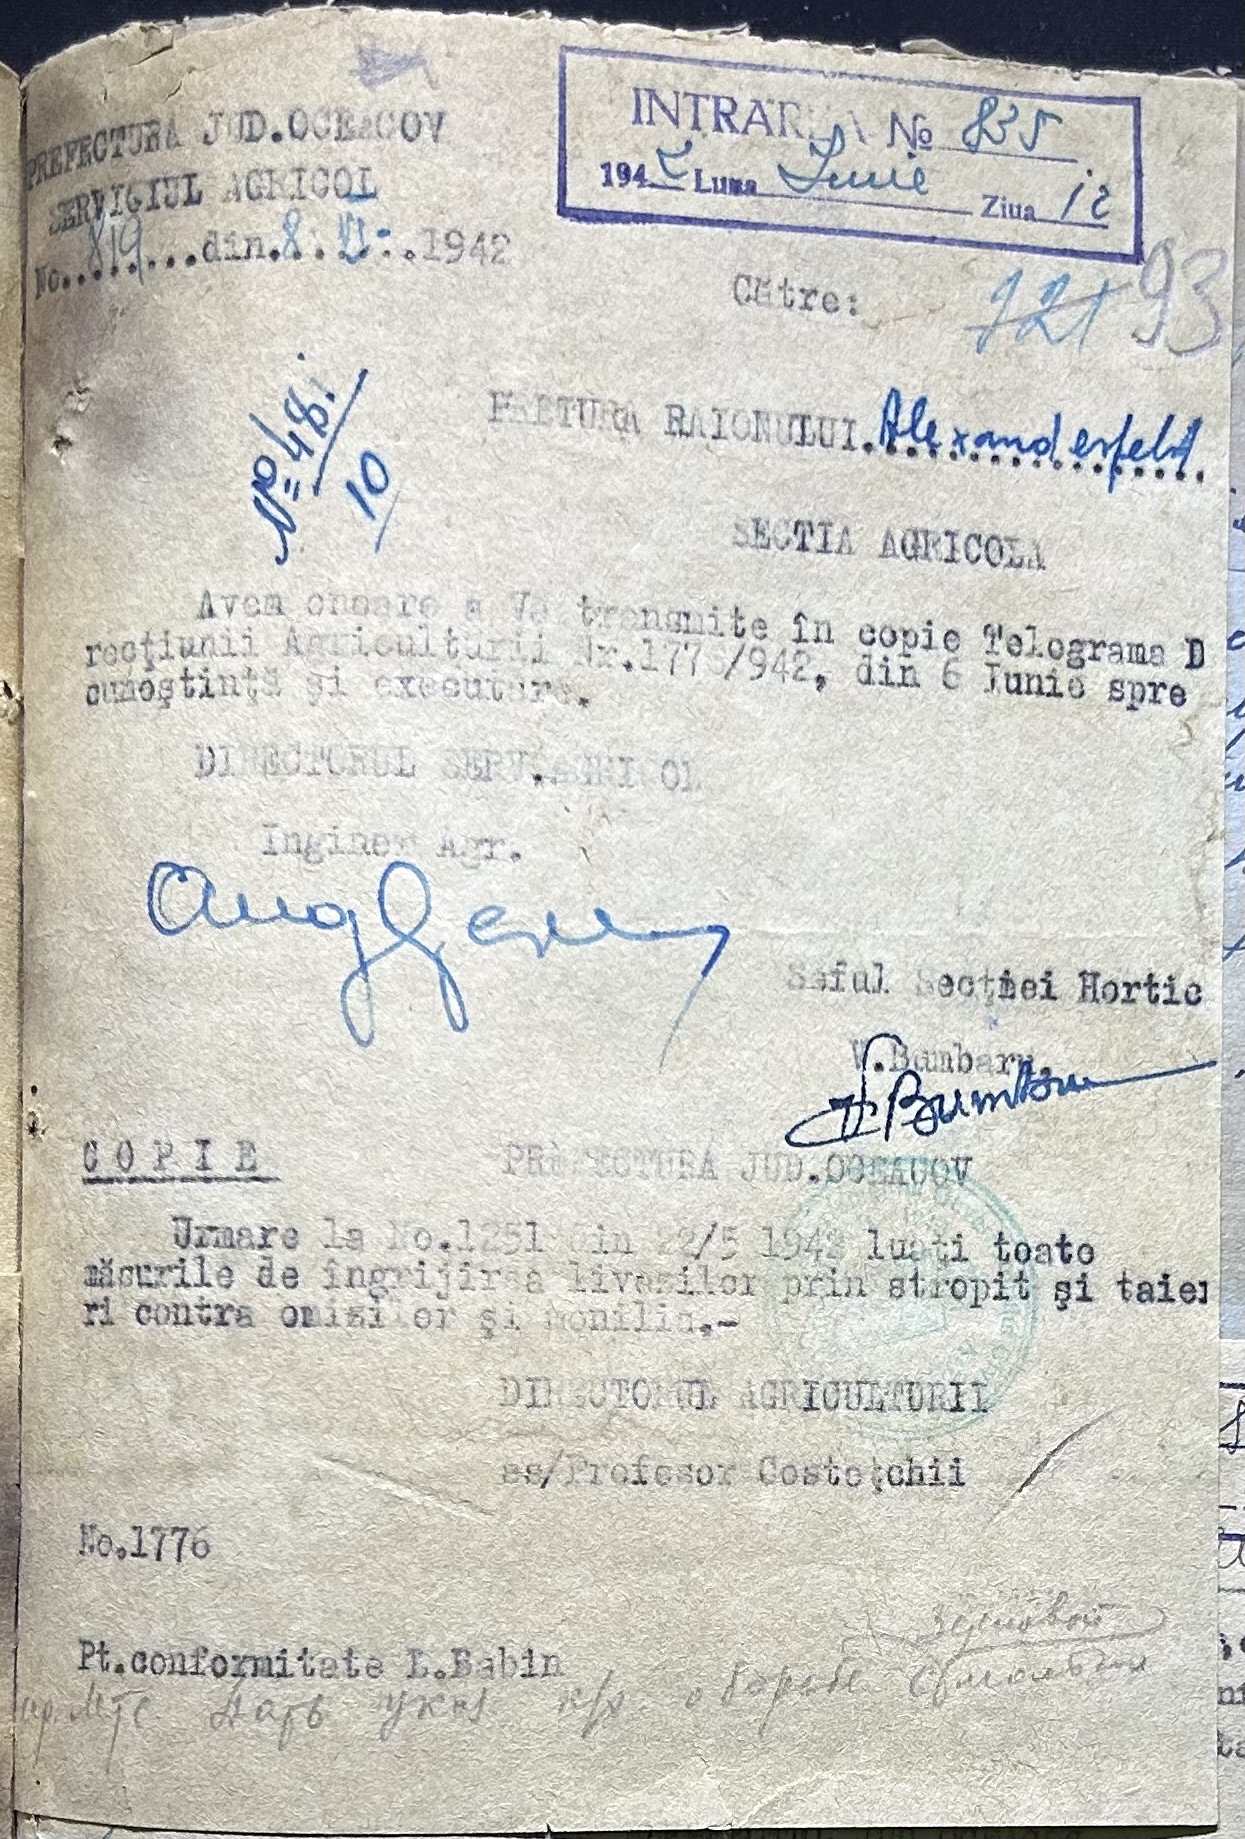 PREFECTURA JUD.OCEACOV
SERVICIUL AGRICOL
No..819...din.8.VI-.1942
INTRAREA № 835
1942 Luna Iunie Ziua 12
Către:
721 93
PRETURA RAIONULUI.Alexanderfeld
No 48/10
SECTIA AGRICOLA
Avem onoare a Vă transmite în copie Telegrama D
recţiunii Agriculturii Nr.1776/942, din 6 Iunie spre
cunoştinţă şi executare.
DIRECTORUL SERV.AGRICOL
Inginer Agr.
Seful Secţiei Hortic
V.Bumbaru.
COPIE
PREFECTURA JUD.OCEACOV
Urmare la No.1251 din 22/5 1942 luaţi toate
măsurile de îngrijirea livezilor prin stropit şi taier
ri contra omizilor şi monilia.-
DIRECTORUL AGRICULTURII
ss/Profesor Costeţchii
No.1776
Pt.conformitate L.Babin
Дать указ к/х о борьбе